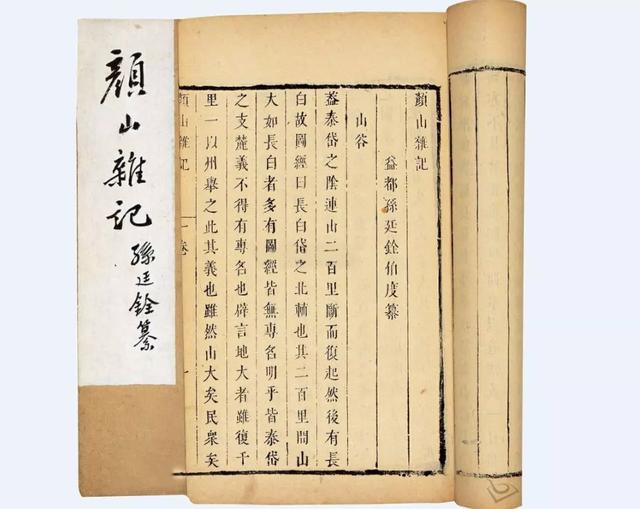 顏山雜記
孫廷銓纂
顏山雜記
益都孫廷銓伯度纂
山谷
葢泰岱之陰連山二百里斷而復起然後有長
白故圖經曰長白岱之北輔也其二百里間山
大如長白者多有圖經皆無專名明乎皆泰岱
之支麓義不得有專名也辟言地大者雖復千
里一以州舉之此其義也雖然山大矣民衆矣
顏山雜記 一卷 一